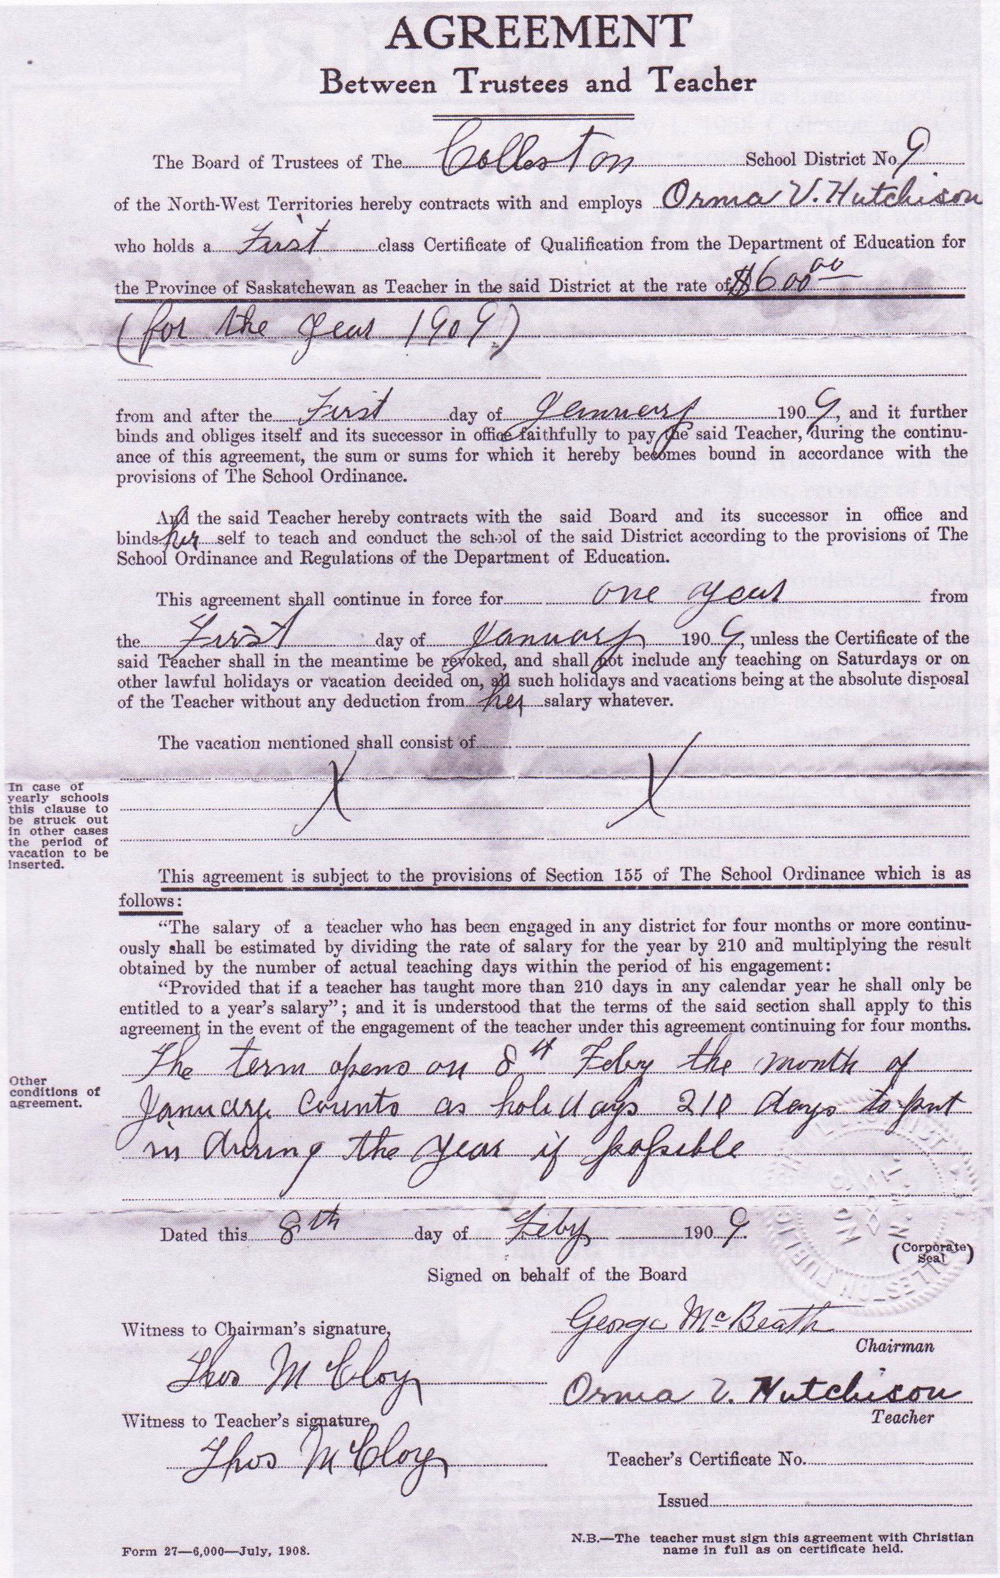 AGREEMENT
Between Trustees and Teacher
The Board of Trustees of The Colleston School District No 9
of the North-West Territories hereby contracts with and employs Orma V. Hutchison
who holds a First class Certificate of Qualification from the Department of Education for
the Province of Saskatchewan as Teacher in the said District at the rate of $600 00
(for the year 1909)
from and after the First day of January 1909, and it further
binds and obliges itself and its successor in office faithfully to pay the said Teacher, during the continu-
ance of this agreement, the sum or sums for which it hereby becomes bound in accordance with the
provisions of The School Ordinance.
And the said Teacher hereby contracts with the said Board and its successor in office and
binds her self to teach and conduct the school of the said District according to the provisions of The
School Ordinance and Regulations of the Department of Education.
This agreement shall continue in force for one year from
the First day of January 1909, unless the Certificate of the
said Teacher shall in the meantime be revoked, and shall not include any teaching on Saturdays or on
other lawful holidays or vacation decided on, all such holidays and vacations being at the absolute disposal
of the Teacher without any deduction from her salary whatever.
The vacation mentioned shall consist of
X X
In case of
yearly schools
this clause to
be struck out
in other cases
the period of
vacation to be
inserted.
This agreement is subject to the provisions of Section 155 of The School Ordinance which is as
follows:
"The salary of a teacher who has been engaged in any district for four months or more continu-
ously shall be estimated by dividing the rate of salary for the year by 210 and multiplying the result
obtained by the number of actual teaching days within the period of his engagement:
"Provided that if a teacher has taught more than 210 days in any calendar year he shall only be
entitled to a year's salary"; and it is understood that the terms of the said section shall apply to this
agreement in the event of the engagement of the teacher under this agreement continuing for four months.
Other
conditions of
agreement.
The term opens on 8th Feby the month of
January counts as holidays 210 days to put
in during the year if possible
Dated this 8th day of Feby 1909.
(Corporate Seal)
Signed on behalf of the Board
Witness to Chairman's signature,
George McBeath
Chairman
Thos McCloy
Orma V. Hutchison
Teacher
Witness to Teacher's signature,
Thos McCloy
Teacher's Certificate No.
Issued
Form 27—6,000—July, 1908.
N.B.—The teacher must sign this agreement with Christian
name in full as on certificate held.